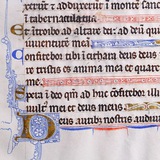 rerūt ⁊ adduxerūt in monte sanc
i tabernacula tua
Et introibo ad altare dei: ad deū qui
iuuentutē meā
Confitebor tibi i cythara deus deus
re tristis es anima mea et quare
me
Spera i deo qm̄ ad huc cōfitebor illi
mei et deus meus
Deus auribus nostris audiui